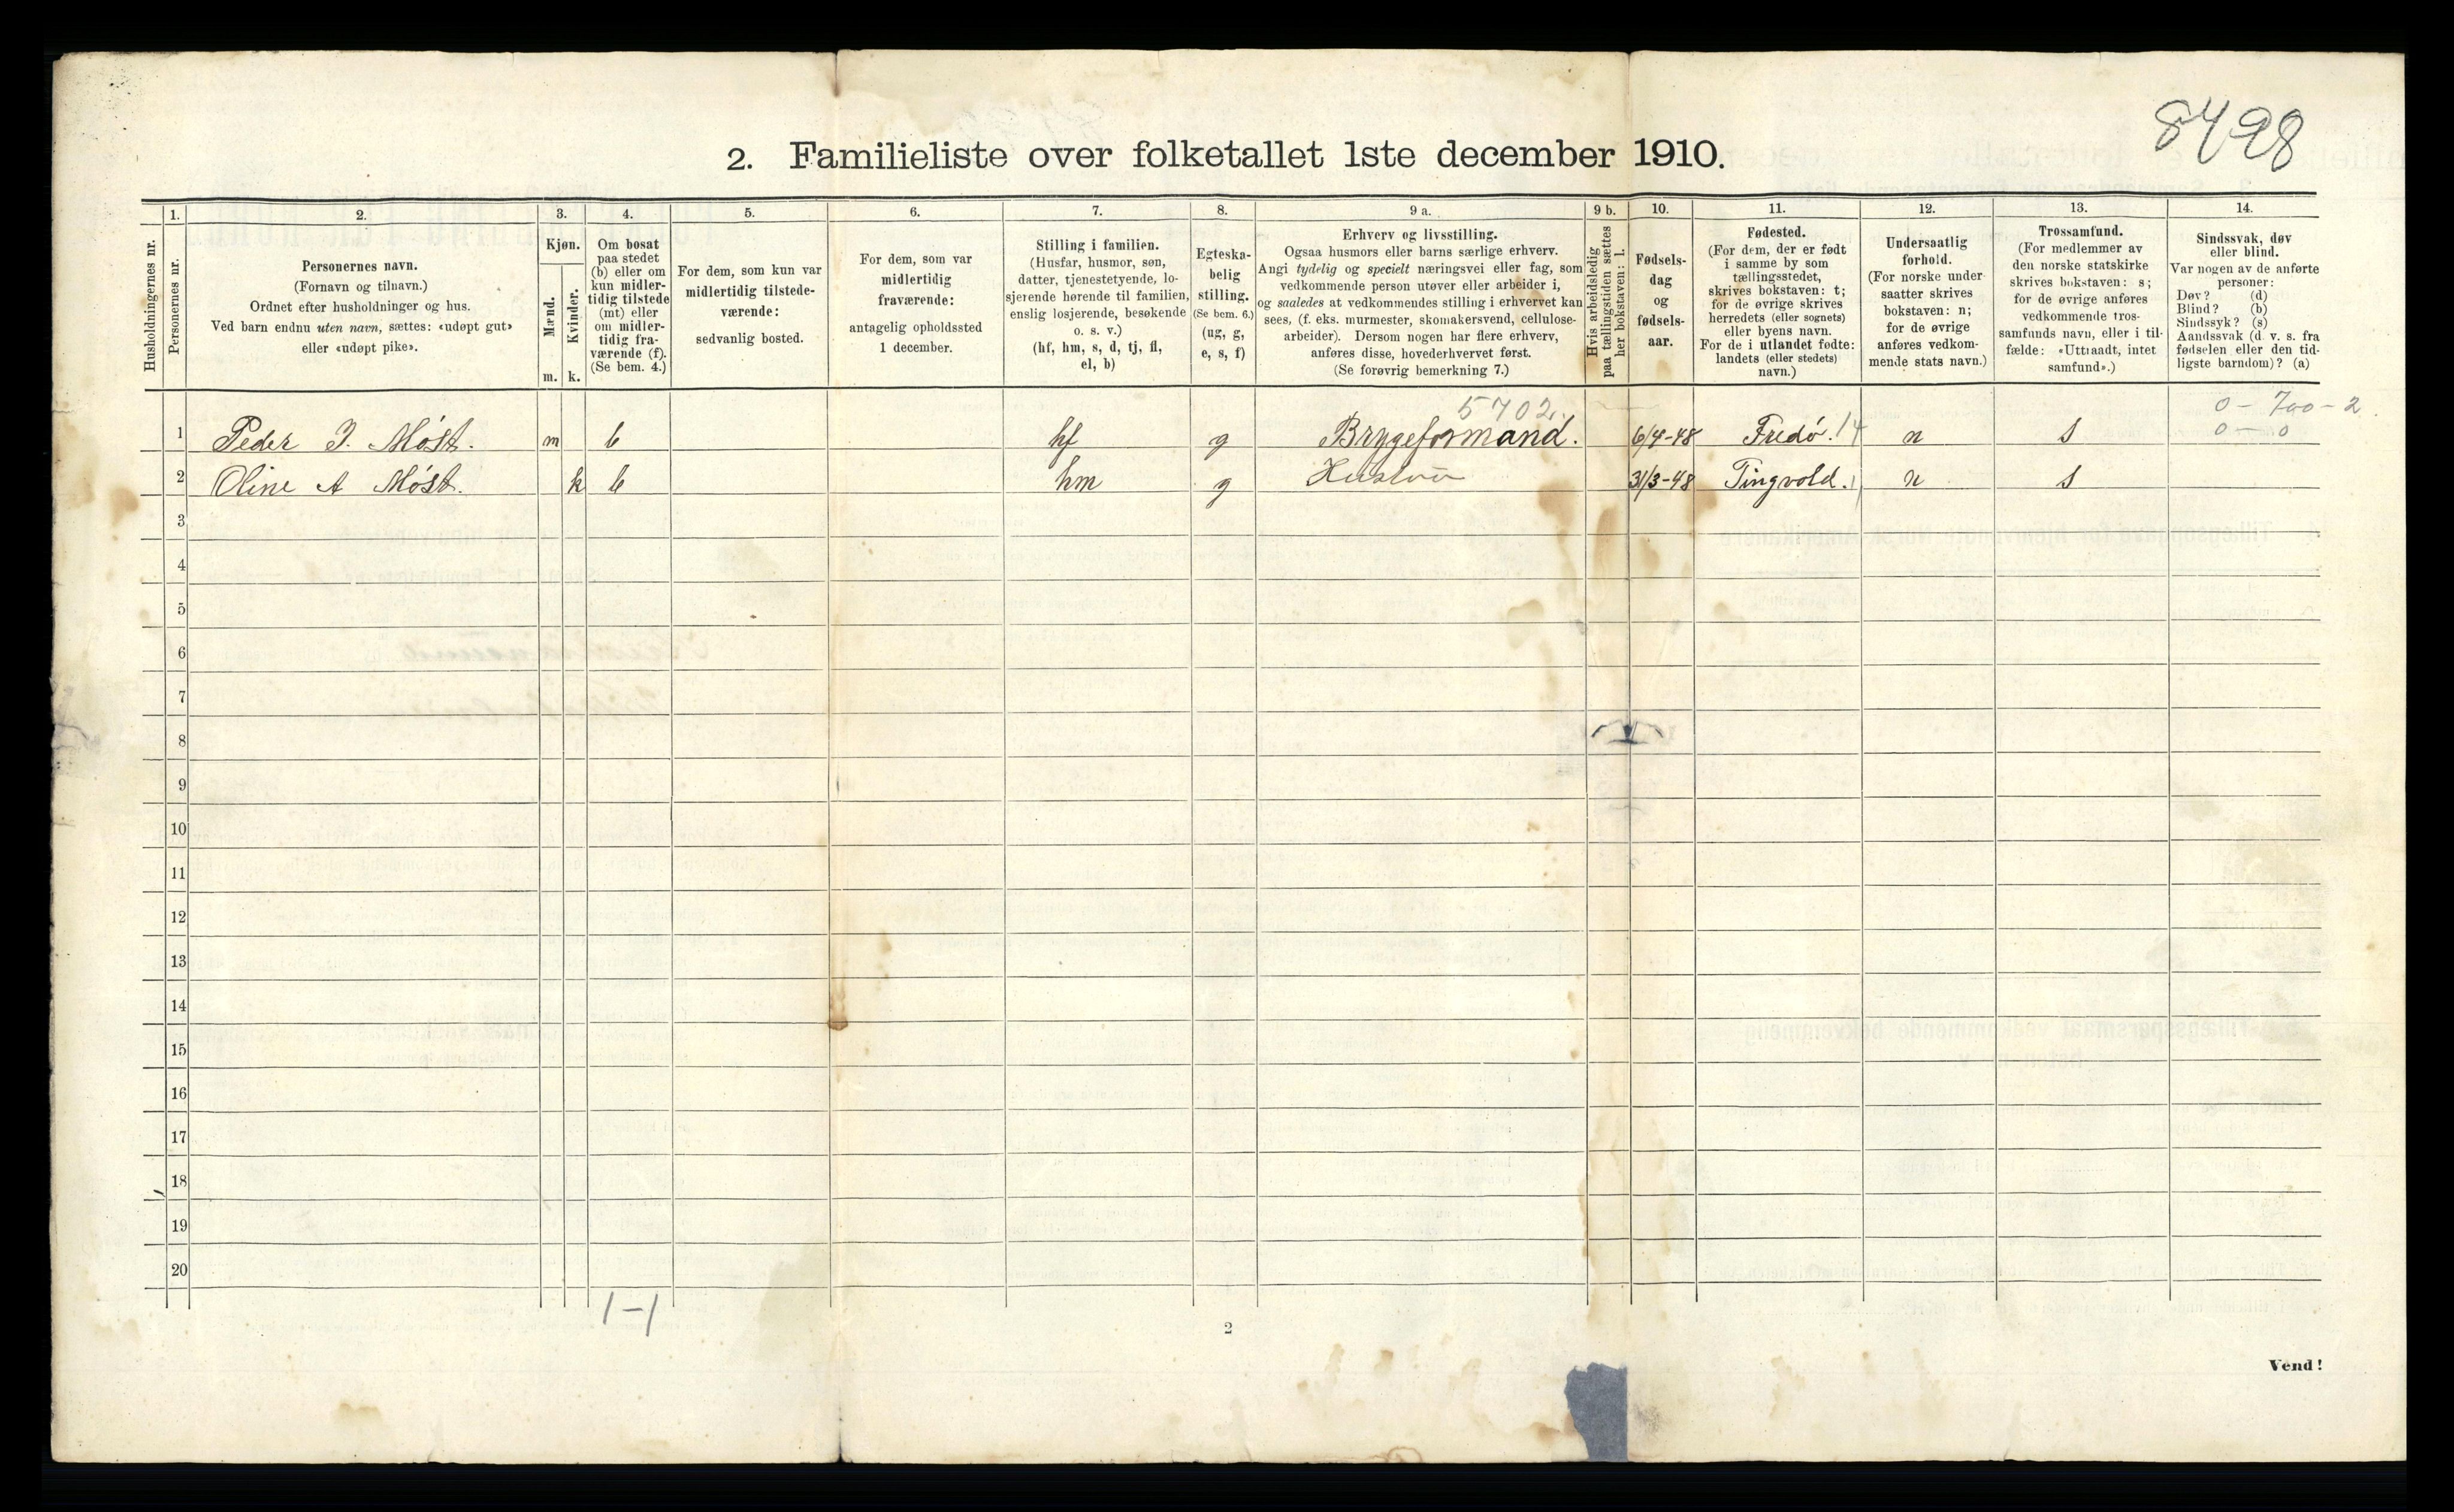 8498
2. Familieliste over folketallet 1ste december 1910.
Husholdningernes nr.
1.
Personernes nr.
2.
Personernes navn.
(Fornavn og tilnavn.)
Ordnet efter husholdninger og hus.
Ved barn endnu uten navn, sættes: «udøpt gut»
eller «udøpt pike».
3.
Kjøn.
Mænd.
Kvinder.
m. k.
4.
Om bosat
paa stedet
(b) eller om
kun midler-
tidig tilstede
(mt) eller
om midler-
tidig fra-
værende (f).
(Se bem. 4.)
5.
For dem, som kun var
midlertidig tilstede-
værende:
sedvanlig bosted.
6.
For dem, som var
midlertidig
fraværende:
antagelig opholdssted
1 december.
7.
Stilling i familien.
(Husfar, husmor, søn,
datter, tjenestetyende, lo-
sjerende hørende til familien,
enslig losjerende, besøkende
o. s. v.)
(hf, hm, s, d, tj, fl,
el, b)
8.
Egteska-
belig
stilling.
(Se bem. 6.)
(ug, g,
e, s, f)
9 a.
Erhverv og livsstilling.
Ogsaa husmors eller barns særlige erhverv.
Angi tydelig og specielt næringsvei eller fag, som
vedkommende person utøver eller arbeider i,
og saaledes at vedkommendes stilling i erhvervet kan
sees, (f. eks. murmester, skomakersvend, cellulose-
arbeider). Dersom nogen har flere erhverv,
anføres disse, hovederhvervet først.
(Se forøvrig bemerkning 7.)
9 b.
Hvis arbeidsledig
paa tællingstiden sættes
her bokstaven: l.
10.
Fødsels-
dag
og
fødsels-
aar.
11.
Fødested.
(For dem, der er født
i samme by som
tællingsstedet,
skrives bokstaven: t;
for de øvrige skrives
herredets (eller sognets)
eller byens navn.
For de i utlandet fødte:
landets (eller stedets)
navn.)
12.
Undersaatlig
forhold.
(For norske under-
saatter skrives
bokstaven: n;
for de øvrige
anføres vedkom-
mende stats navn.)
13.
Trossamfund.
(For medlemmer av
den norske statskirke
skrives bokstaven: s;
for de øvrige anføres
vedkommende tros-
samfunds navn, eller i til-
fælde: «Uttraadt, intet
samfund».)
14.
Sindssvak, døv
eller blind.
Var nogen av de anførte
personer:
Døv? (d)
Blind? (b)
Sindssyk? (s)
Aandssvak (d. v. s. fra
fødselen eller den tid-
ligste barndom)? (a)
5702. 0 - 700 - 2
1 Peder I. Møst. m b hf g Bryggeformand. 6/4-48 Fredø. 14 n s 0 - 0
2 Oline A Møst. k b hm g Hustru 31/3-48 Tingvold. n s
3
4
5
6
7
8
9
10
11
12
13
14
15
16
17
18
19
20
1-1
2
Vend!